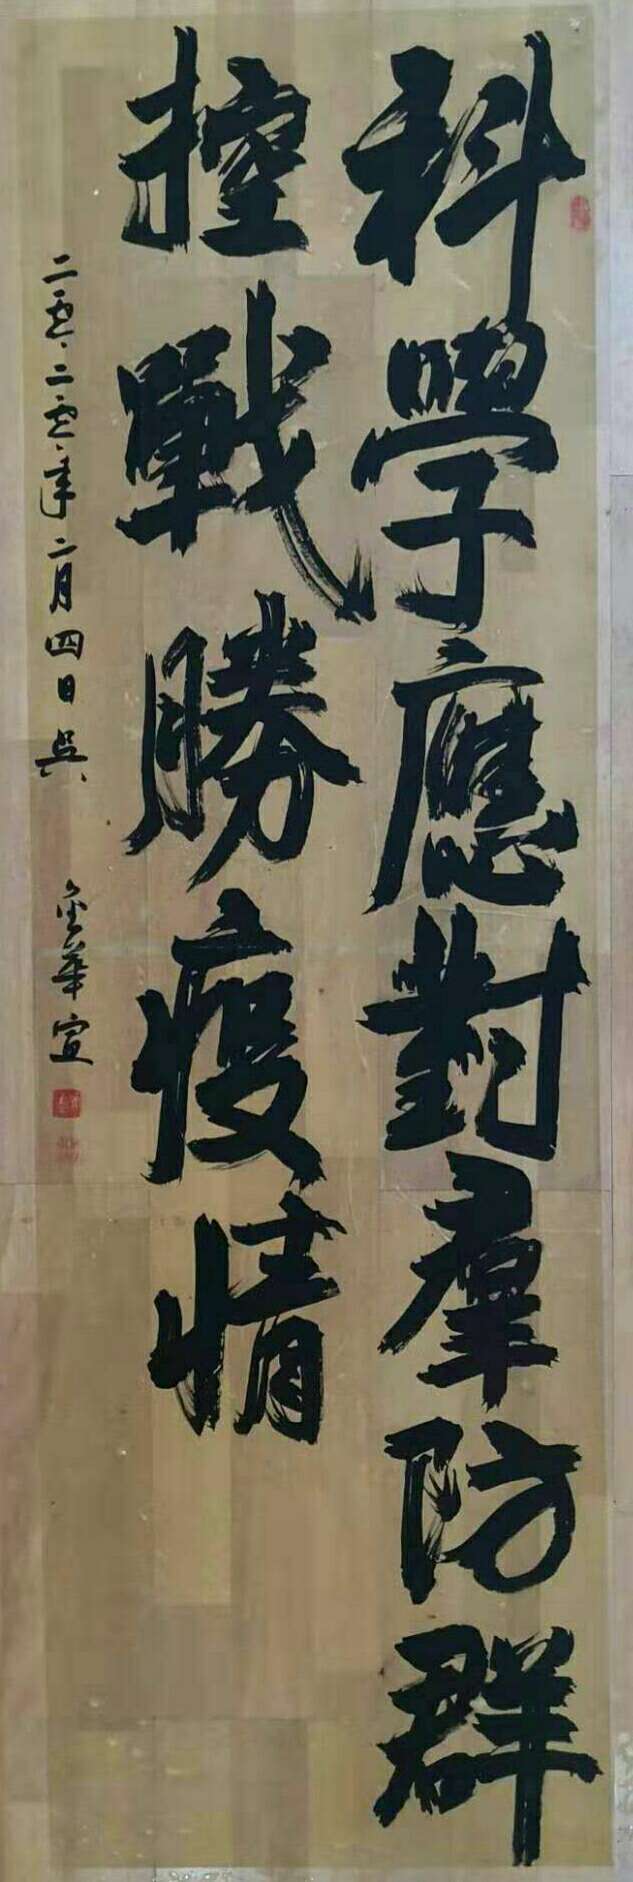 科學應對羣防群
控戰勝疫情
二零二零年二月四日吳
金華宣